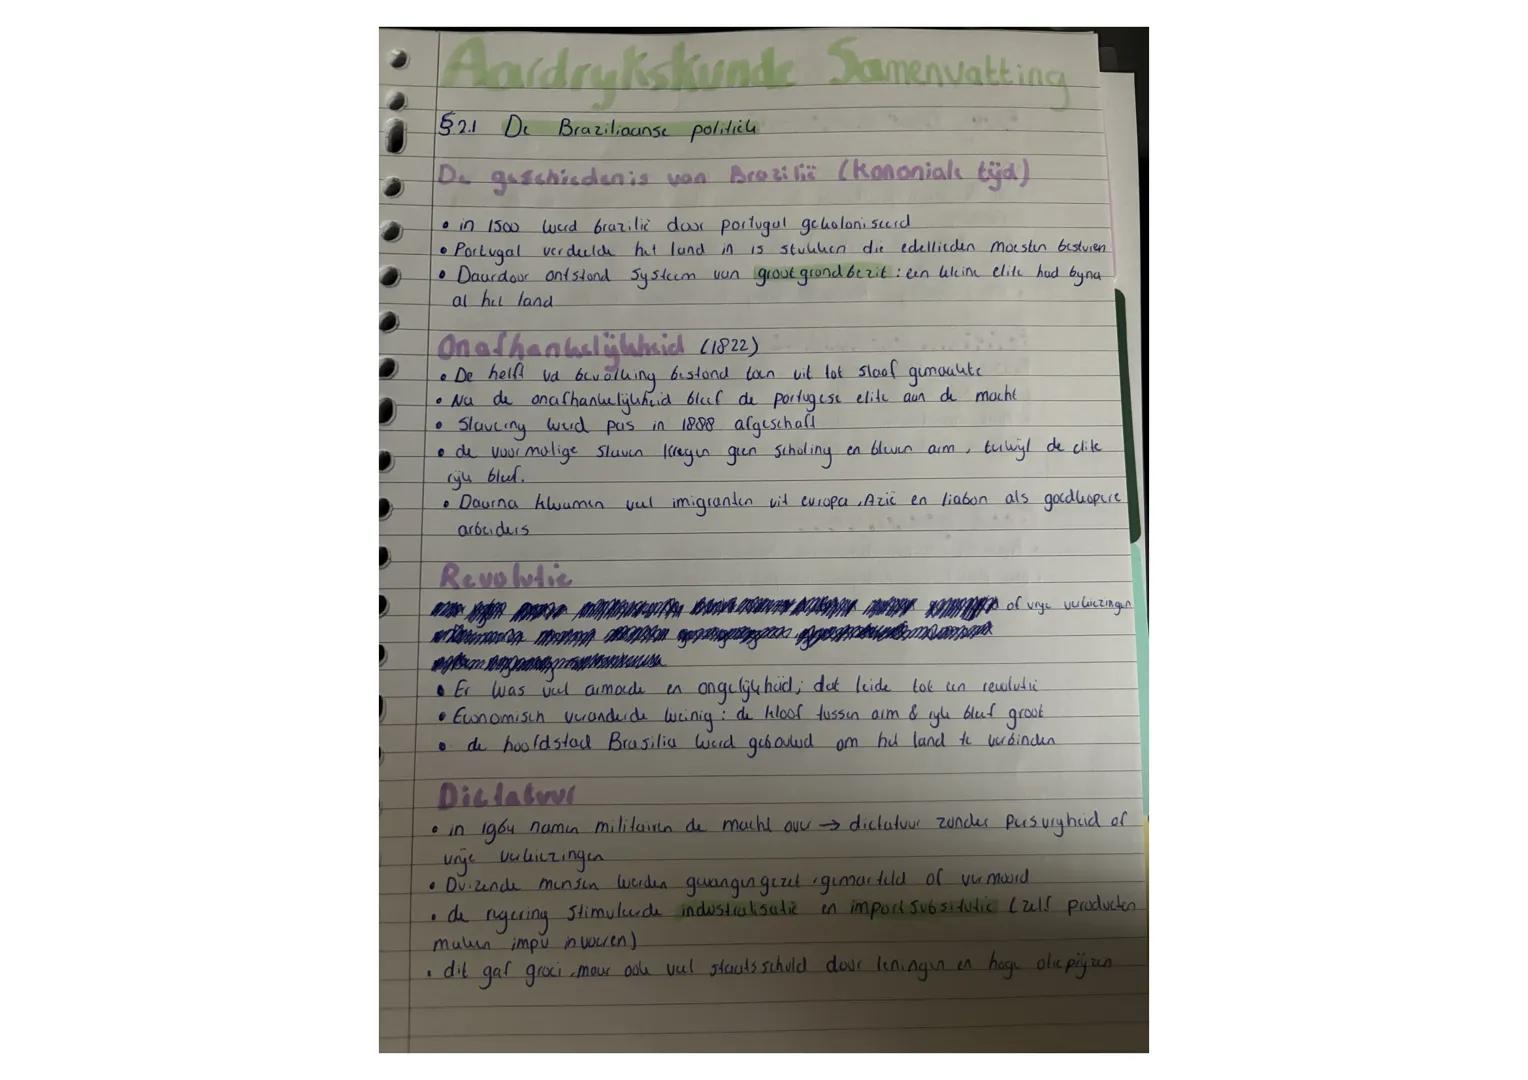 Aardrykskunde Samenvatting
§2.1 De Braziliaanse politiek
De geschiedenis van Brazilië (Kononiale tijd)
• in 1500 werd brazilië door portugal gekoloniseerd
• Portugal verdeelde het land in 15 stukken die edellieden moesten besturen
• Daardoor ontstond systeem van grootgrondbezit : een kleine elite had byna
al het land
Onafhankelijkheid (1822)
• De helft vd bevolking bestond toen uit tot slaaf gemaakte
• Na de onafhankelijkheid bleef de portugese elite aan de macht
• Slaverny werd pas in 1888 afgeschaft
• de voormalige slaven kregen geen scholing en bleven arm, terwijl de elite
ryk bleef.
• Daarna kwamen veel imigranten uit europa, Azië en liabon als goedkopere
arbeiders
Revolutie
of vrye verkiezingen
• Er was veel armoede en ongelijkheid; dat leide tot een revolutie
• Economisch veranderde weinig : de kloof tussen arm & ryk bleef groot
• de hoofdstad Brasilia werd gebouwd om het land te verbinden
Dictatuur
• in 1964 namen militairen de macht over → dictatuur zonder persvryheid of
vrije verkiezingen
• Duizende mensen werden gevangengezet, gemarteld of vermoord
• de regering stimuleerde industrialisatie en importsubsitutie (zelf producten
maken impv invoeren)
• dit gaf groei, maar ook veel staatsschuld door leningen en hoge olieprijzen